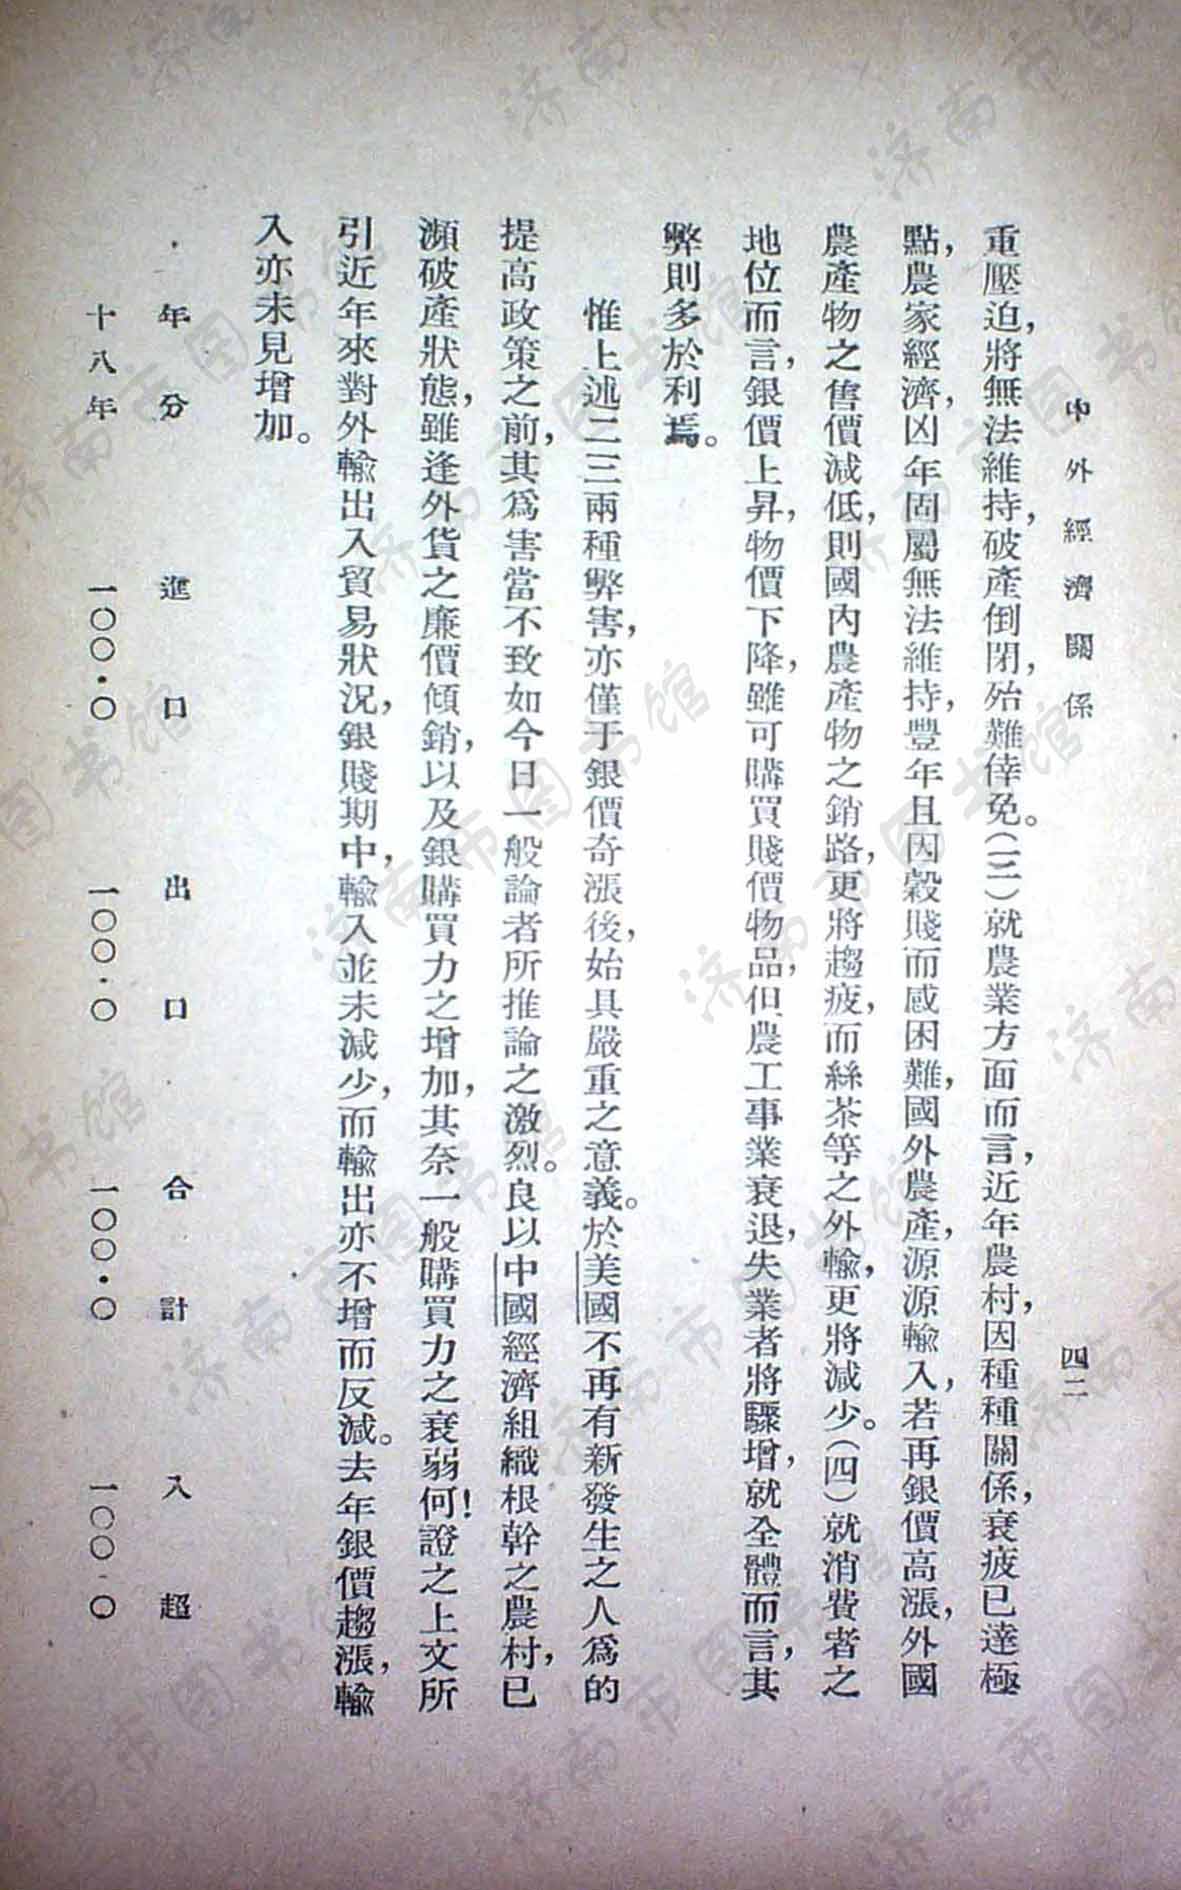 中外經濟關係
四二
重壓迫，將無法維持，破產倒閉，殆難倖免。（三）就農業方面而言，近年農村，因種種關係，衰疲已達極
點，農家經濟，凶年固屬無法維持，豐年且因穀賤而感困難，國外農產，源源輸入，若再銀價高漲，外國
農產物之售價減低，則國內農產物之銷路，更將趨疲，而絲茶等之外輸，更將減少。（四）就消費者之
地位而言，銀價上昇，物價下降，雖可購買賤價物品，但農工事業衰退，失業者將驟增，就全體而言，其
弊則多於利焉。
惟上述二三兩種弊害，亦僅于銀價奇漲後，始具嚴重之意義。於美國不再有新發生之人爲的
提高政策之前，其爲害當不致如今日一般論者所推論之激烈。良以中國經濟組織根幹之農村，已
瀕破產狀態，雖逢外貨之廉價傾銷，以及銀購買力之增加，其奈一般購買力之衰弱何！證之上文所
引近年來對外輸出入貿易狀況，銀賤期中，輸入並未減少，而輸出亦不增而反減。去年銀價趨漲，輸
入亦未見增加。
年分　進口　出口　合計　入超
十八年　一〇〇·〇　一〇〇·〇　一〇〇·〇　一〇〇·〇
济南市图书馆